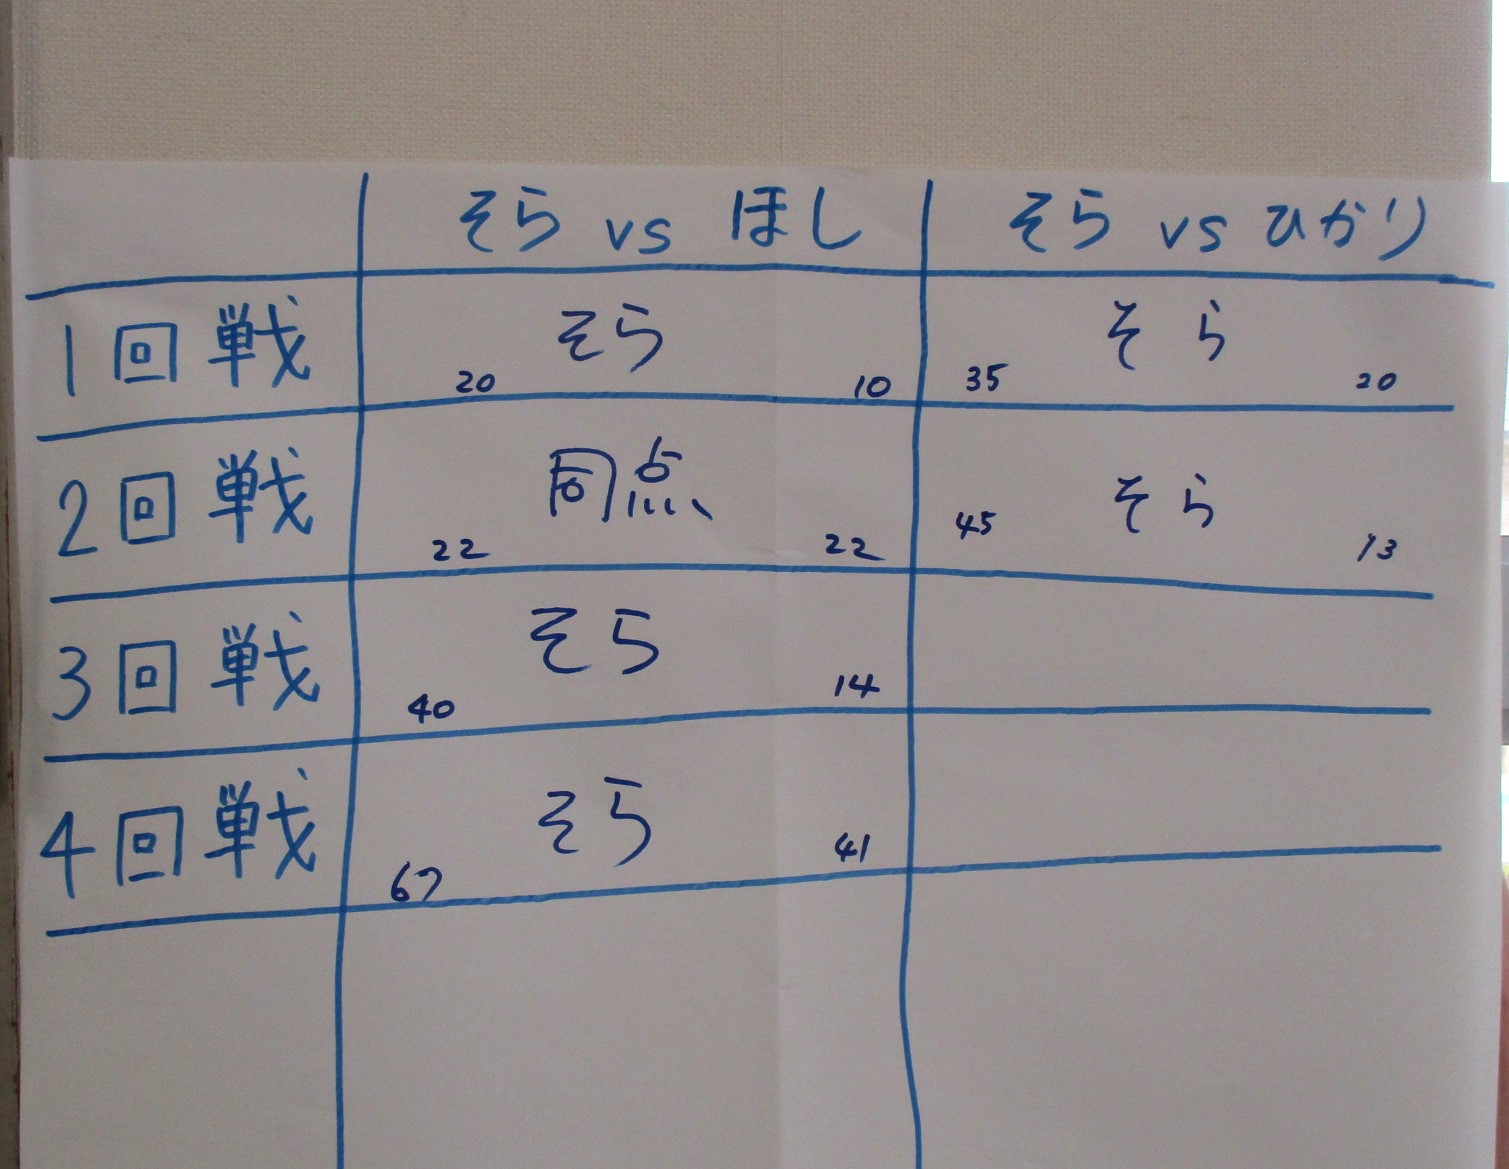 そら vs ほし そら vs ひかり
1回戦 そら そら
20 10 35 20
2回戦 同点 そら
22 22 45 13
3回戦 そら
40 14
4回戦 そら
67 41